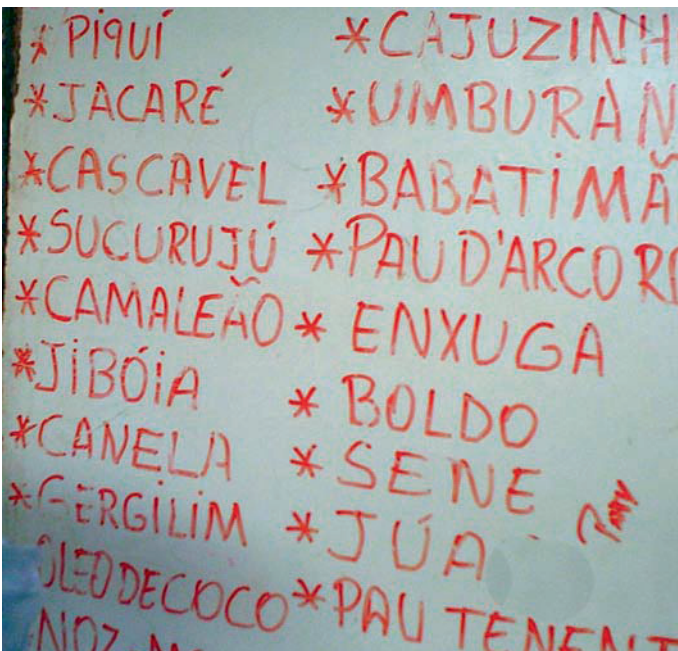 * PIQUÍ
* JACARÉ
* CASCAVEL
* SUCURUJÚ
* CAMALEÃO
* JIBÓIA
* CANELA
* GERGILIM
OLEO DE COCO
NOZ
* CAJUZINH
* UMBURAN
* BABATIMÃ
* PAU D'ARCO RO
* ENXUGA
* BOLDO
* SENE
* JÚA
* PAU TENENT